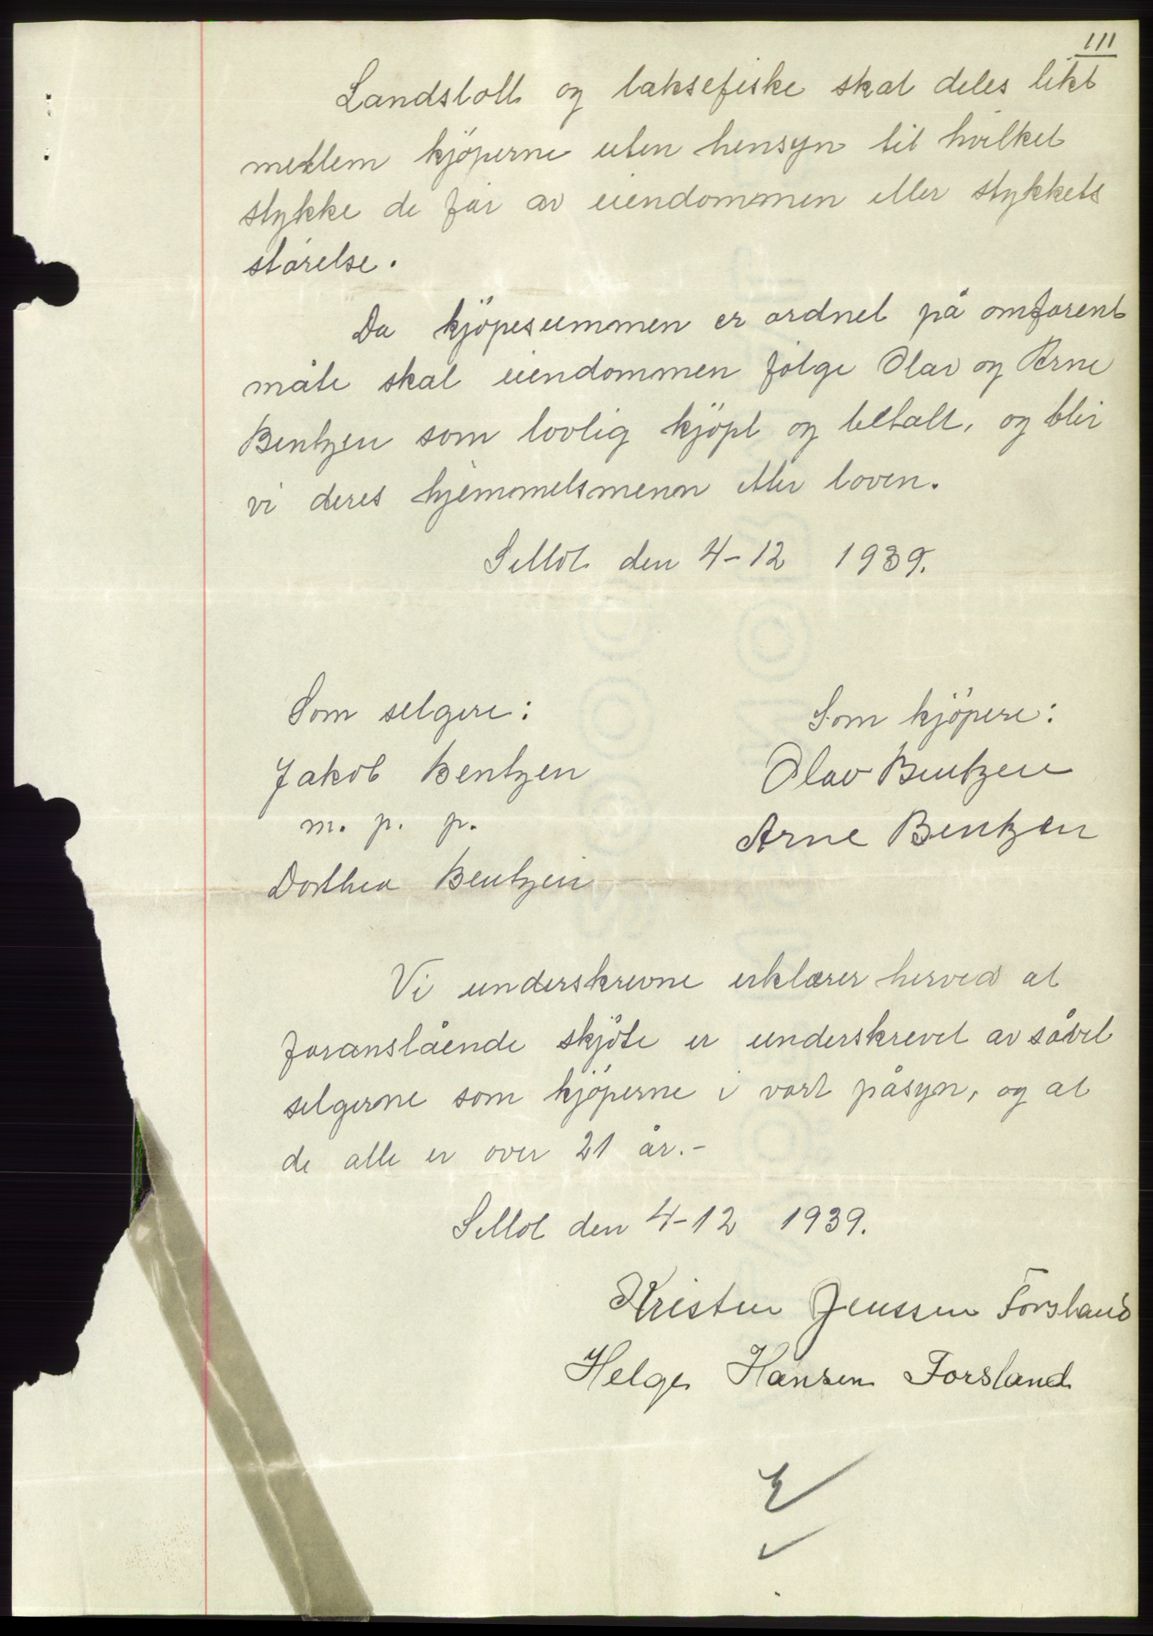 111
Landslott og laksefiske skal deles likt
mellem kjöperne uten hensyn til hvilket
stykke de får av eiendommen eller stykkets
störelse.
Da kjöpesummen er ordnet på omforent
måte skal eiendommen følge Olav og Arne
Bentzen som lovlig kjöpt og betalt, og blir
vi deres hjemmelsmenn etter loven.
den 4-12 1939.
Som selgere:
Som kjöpere:
Jakob Bentzen
Olav Bentzen
m. p. p.
Arne Bentzen
Dorthea Bentzen
Vi underskrevne erklærer herved at
foranstående skjöte er underskrevet av såvel
selgerne som kjöperne i vort påsyn, og at
de alle er over 21 år.-
den 4-12 1939.
Kristen Jenssen Forsland
Helge Hansen Forsland